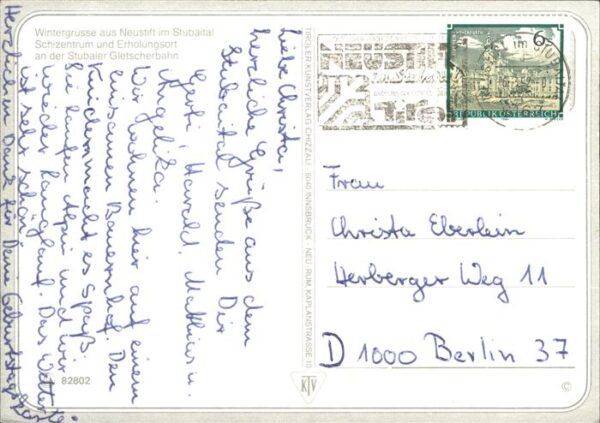 Wintergrusse aus Neustift im Stubaital
Schizentrum und Erholungsort
an der Stubaier Gletscherbahn
Liebe Christa,
herzliche Grüße aus dem
Stubaital senden Dir
Gerti, Harald, Mathias u.
Angelika.
Wir wohnen hier auf einem
einsamen Bauernhof. Den
Kindern macht es Spaß.
Sie laufen Alpin und wir
wieder Langlauf. Das Wetter
ist sehr schön.
Herzlichen Dank für Deine Geburtstags
82802
TIROLER KUNSTVERLAG CHIZZALI · 6040 INNSBRUCK · NEU-RUM, KAPLANSTRASSE 10
KTV
©
NEUSTIFT
im
Tirol
6
REPUBLIK ÖSTERREICH
Frau
Christa Eberlein
Herberger Weg 11
D 1000 Berlin 37